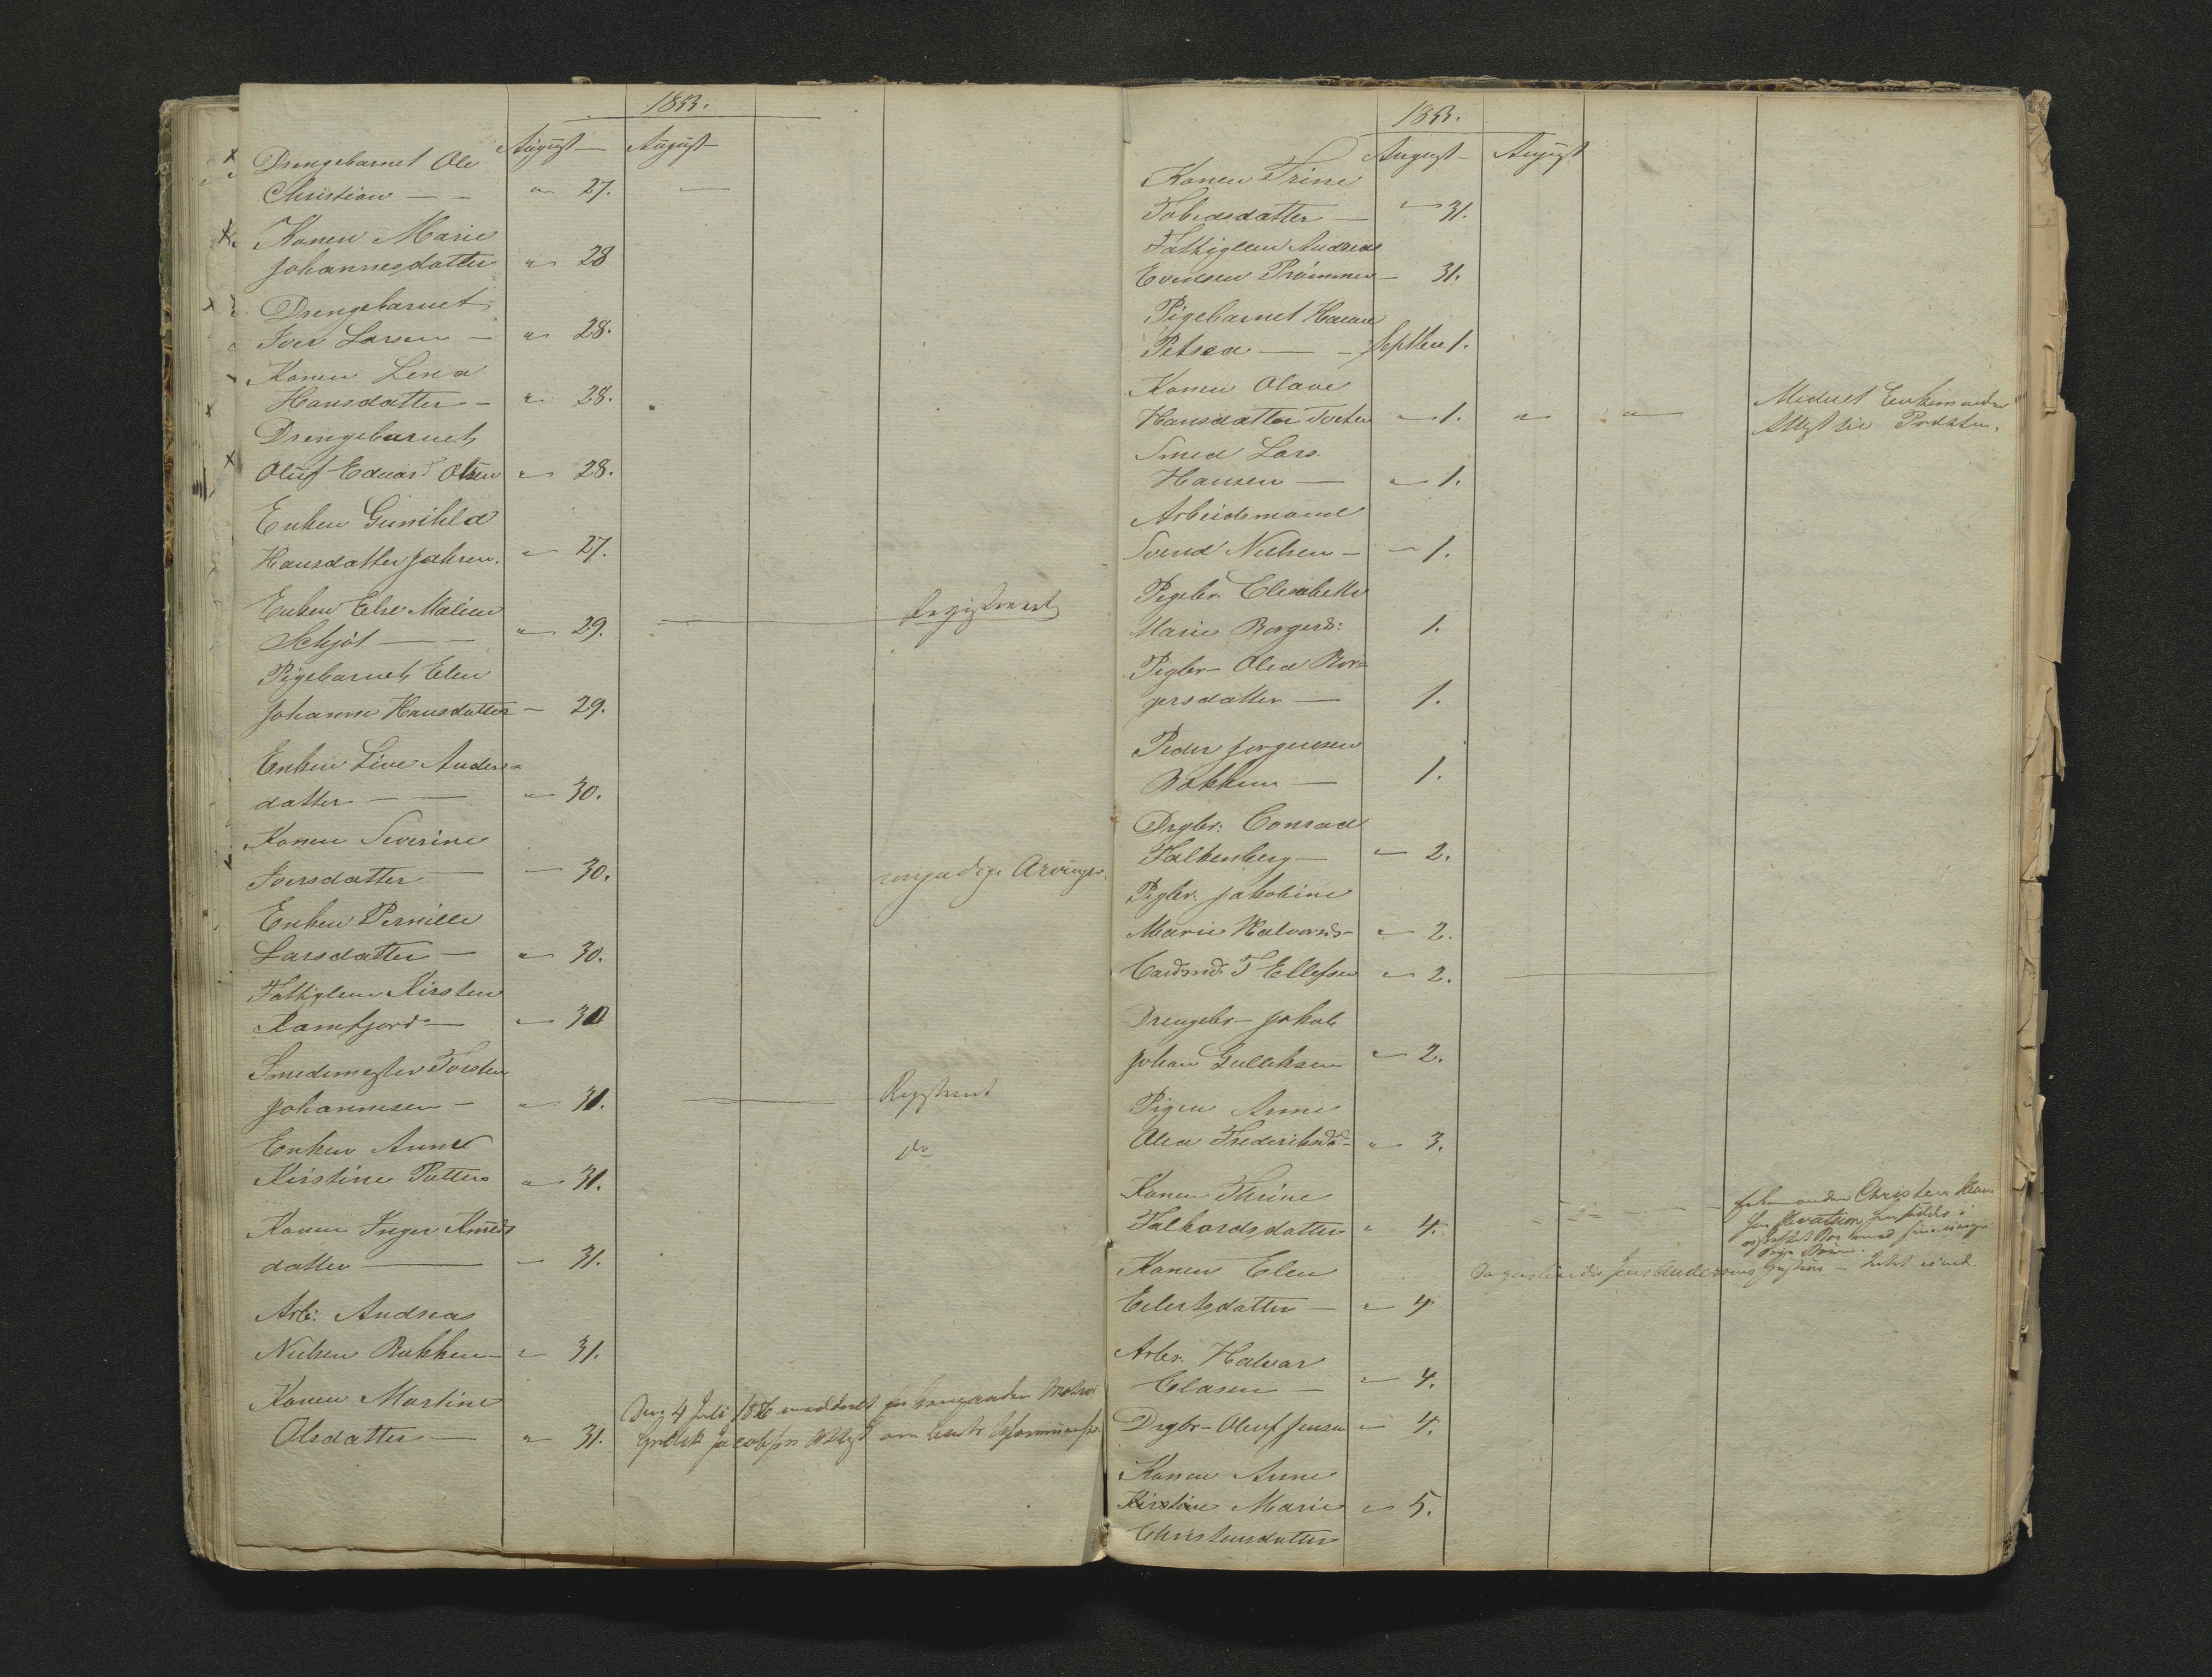 1853.
August — August
Drengebarnet Ole
Christian — — " 27. —
Konen Marie
Johannesdatter " 28
Drengebarnet
Iver Larsen — " 28.
Konen Lena
Hansdatter — " 28.
Drengebarnet
Oluf Eduard Olsen " 28.
Enken Gunihld
Hansdatter Jahren. " 27.
Enken Else Malien
Schjöt — — " 29. — Registreret
Pigebarnet Elen
Johanne Hansdatter — 29.
Enken Live Anders=
datter — — " 30.
Konen Severine
Iversdatter — — 30. umyndige Arvinger.
Enken Pernille
Larsdatter — " 30.
Fattiglem Kirsten
Ramfjord — " 30
Smedemester Torsten
Johannesen — " 31. — Registreret
Enken Anne do
Kirstine Potter " 31.
Konen Inger Knuds
datter — — 31.
Arb: Andreas
Nielsen Bakken — " 31.
Konen Martine
Olsdatter — " 31.
Den 4 Juli 1856 meddeelt
Attest om
1853.
August — August
Konen Trine
Tobiasdatter — " 31.
Fattiglem Andreas
Evensen Prammen — 31.
Pigebarnet Hanne
Petrea — — Septber 1.
Konen Olave
Hansdatter " 1. " " Meddeelt Enkemanden
Attest til Probsten.
Smed Lars
Hansen — " 1.
Arbeidsmand
Svend Nielsen — " 1.
Pigebr. Elisabeth
Marie Borgersd: 1.
Pigebr — Olea Bor=
gersdatter — 1.
Peder Jorgensen
Bakken — 1.
Drgbr: Conrad
Falkenberg — " 2.
Pigbr. Jakobine
Marie Halvorsd — " 2.
T Ellefsen " 2. —
Drengebr — Jakob
Johan Gulliksen " 2.
Pigen Anne
Olea Frederiksd — " 3.
Konen Thrine
Falkordsdatter " 4.
Enkemanden Christen
Bevilling
Konen Elen
Eilertsdatter — " 4
Jens Andersens
Arbr. Halvar
Clasen — " 4.
Drgbr — Oluf Jensen — 4.
Konen Anne
Kirstine Marie " 5.
Christensdatter